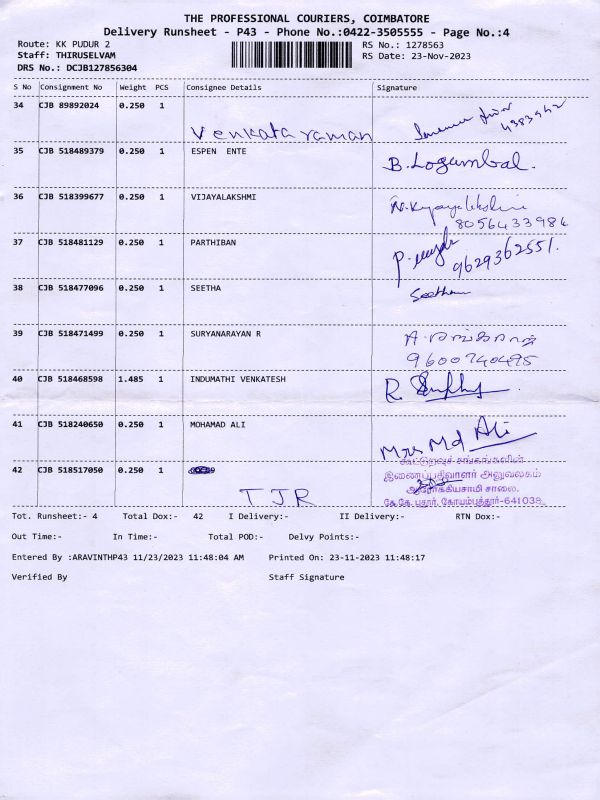 THE PROFESSIONAL COURIERS, COIMBATORE
Delivery Runsheet - P43 - Phone No.:0422-3505555 - Page No.:4
Route: KK PUDUR 2 RS No.: 1278563
Staff: THIRUSELVAM RS Date: 23-Nov-2023
DRS No.: DCJB127856304
S No Consignment No Weight PCS Consignee Details Signature
34 CJB 89892024 0.250 1
Venkata raman
35 CJB 518489379 0.250 1 ESPEN ENTE B. Logambal.
36 CJB 518399677 0.250 1 VIJAYALAKSHMI
8056433986
37 CJB 518481129 0.250 1 PARTHIBAN P.
9629362551.
38 CJB 518477096 0.250 1 SEETHA Seetha
39 CJB 518471499 0.250 1 SURYANARAYAN R
9600740495
40 CJB 518468598 1.485 1 INDUMATHI VENKATESH R.
41 CJB 518240650 0.250 1 MOHAMAD ALI Mrs Md Ali
42 CJB 518517050 0.250 1 கூட்டுறவுச் சங்கங்களின்
இணைப்பதிவாளர் அலுவலகம்
TJR ஆரோக்கியசாமி சாலை,
கே.கே.புதூர், கோயம்புத்தூர்-641038.
Tot. Runsheet:- 4 Total Dox:- 42 I Delivery:- II Delivery:- RTN Dox:-
Out Time:- In Time:- Total POD:- Delvy Points:-
Entered By :ARAVINTHP43 11/23/2023 11:48:04 AM Printed On: 23-11-2023 11:48:17
Verified By Staff Signature